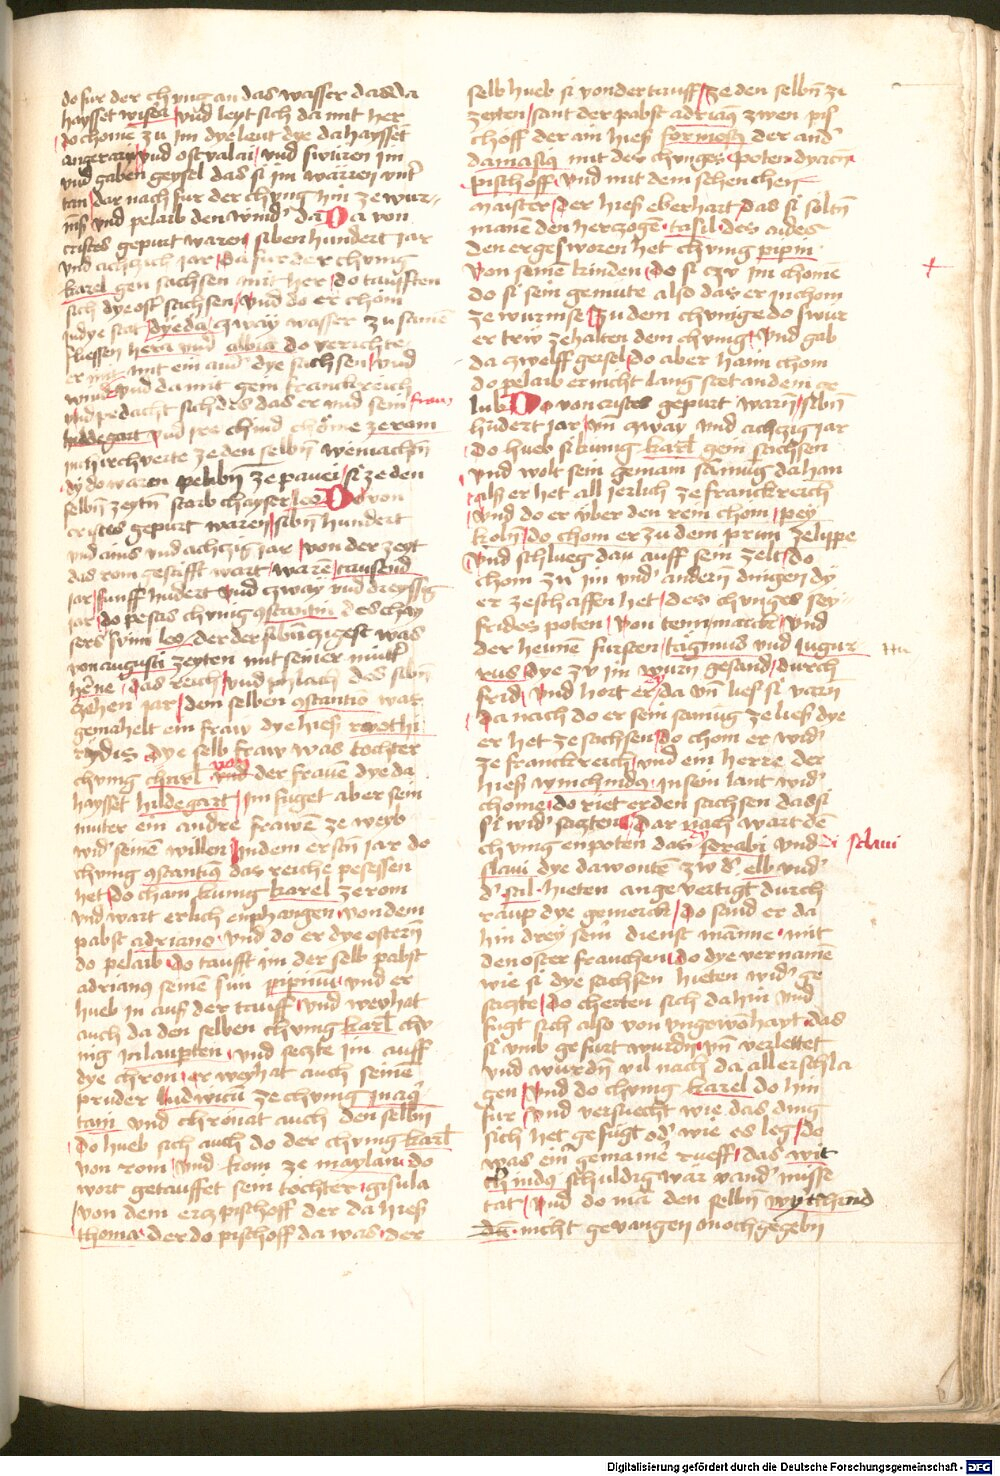 do fur der chung an das wasser das da
haysset wisera vnd leyt sich da mit her
do chome zu im dye leut dye da haysset
angerary vnd ostvalai vnd swuren im
vnd gaben geysel das si im warren vnt'
tan dar nach fur der chung hin ze wur
ms vnd pelaib den wind' da Da von
cristes gepurt waren siben hundert jar
vnd achczich jar da fur der chung
karel gen sachsen mit her do taufften
sich dye ost sachsen vnd do er chom
in dye stat dye da czway wasser zu samē
fliessen hera vnd albia do verichte
er mit ein and' dye sachsen vnd
wind vnd da mit gein franckreich
vnd pedacht sich des das er vnd sein fraw
hildegart vnd ire chind chome ze rom
in chirchverte ze den selbn weinachtn
dy do waren pelibn ze pauei si ze den
selbn zeytn starb chayser leo Do von
cristes gepurt waren sibn hundert
vnd ains vnd achczig jar von der zeyt
das rom gestifft wart ware tausend
jar funff hudert vnd czway vnd dreyssig
jar do pesas chunig constantin des chay
sers sun leo der der sibnczigest was
von augusti zeyten mit seiner mutt'
herne das reich vnd pylach des sibn
zehen jar dem selben constantio war
gemahelt ein fraw dye hies rwothi
rydis dye selb fraw was tochter
chung charl von der frauen dye da
haysset hildegart im fuget aber sein
muter ein andre frawē ze weyb
wid' seinē willen in dem erstn jar do
chung constantius das reiche pesessen
het do cham kunig karel ze rom
vnd wart erlich enphangen von dem
pabst adriano vnd do er dye ostern
do pelaib do taufft im der selb pabst
adrianus seinē sun pipinum vnd er
hueb in aus der tauff vnd weyhat
auch da den selben chung karl chu
nig in laupten vnd seczte im auff
dye chron er weyhat auch seinē
pruder ludwicū ze chung in aqui
tain vnd chronat auch den selbn
do hueb sich auch do der chung karl
von rom vnd kom ze maylan do
wort getauffet sein tochter gisula
von dem ercz pischoff der da hies
thoma der do pischoff da was der
selb hueb si von der tauff ze den selbn zi
zeyten sant der pabst adrianus zwen pis
choff der ain hies formosus der and'
damasius mit des chunges poten dyacn
pischoff vnd mit dem schenchen
maister der hies eberhart das si soltn
manē den herczogē tasil des aides
den er gesworen het chunig pipin
von seinē kinden do si czu im chome
do si sein gemute also das er in chom
ze wurmse zu dem chunige do swur
er triv ze halten dem chunig vnd gab
da zwelff geisel do aber haim chom
do pelaib er nicht lang stet an dem ge
lub Do von cristes gepurt warn sibn
hūdert jar vn czway vnd achczig jar
do hueb si kunig karl gein sachsen
vnd wolt sein gemain samūg da han
als er het all jerlich ze franckreich
vnd do er vber den rein chom pey
koln do chom er zu dem prun ze lippe
vnd schlueg dau auff sein zelt do
chom zu im vnd' andern dingen dy
er ze schaffen het des chunges sey
frides poten von tenmarck vnd
der heunē fursten tagmus vnd jugur
rus dye zu im wurn gesand durch
frid vnd hort er da vn lies si varn
da nach do er sein samūg ze lies dye
er het ze sachsen do chom er wid'
ze franckreich vnd ein herre der
hies winchinda in sein lant wid'
chome do riet er den sachsen das si
si wid' saczten dar nach wart de
chung enpoten das sorabi vnd di sclaui
slaui dye da wontē zw d' elb vnd'
d' sal hieten ange vertigt durch
raup dye gemerck do sand er da
hin drey sein dienst manne mit
den oster frauchen do dye vernamē
wie si dye sachsen hieten wid' ge
saczte do cherten sich da hin vnd
fugt sich also von vngewōhayt das
si vmb gefurt wurdn vn verlettet
vnd wurdn vil nach da all erschla
gen vnd do chunig karel do hin
fur vnd versuecht wie das ding
sich het gefugt od' wie es leg do
was ein' gemainē rueff das wit
chindus schuldig wär vand' misse
tat vnd do mā den selbn wytchind
dū nicht gevangen moch gegebn